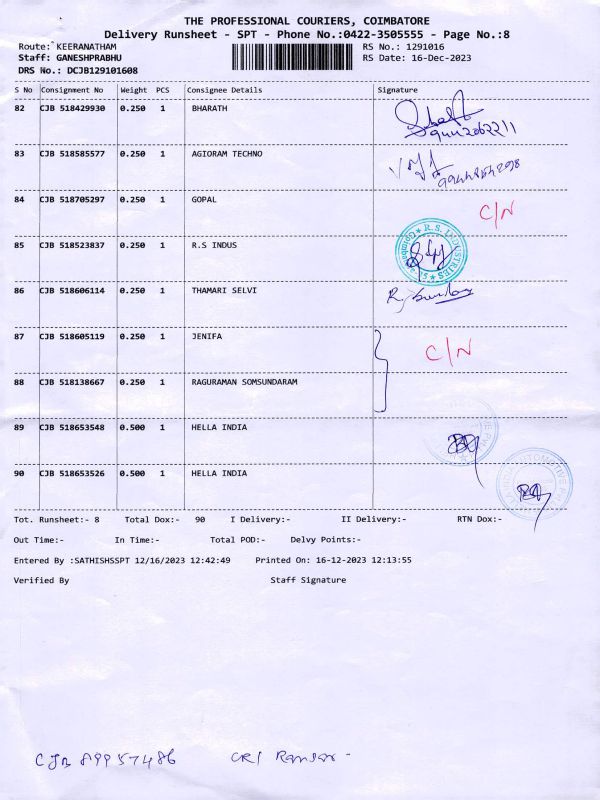 THE PROFESSIONAL COURIERS, COIMBATORE
Delivery Runsheet - SPT - Phone No.:0422-3505555 - Page No.:8
Route: KEERANATHAM RS No.: 1291016
Staff: GANESHPRABHU RS Date: 16-Dec-2023
DRS No.: DCJB129101608
S No Consignment No Weight PCS Consignee Details Signature
82 CJB 518429930 0.250 1 BHARATH
83 CJB 518585577 0.250 1 AGIORAM TECHNO
84 CJB 518705297 0.250 1 GOPAL C/N
85 CJB 518523837 0.250 1 R.S INDUS R.S. INDUSTRIES
86 CJB 518606114 0.250 1 THAMARI SELVI
87 CJB 518605119 0.250 1 JENIFA C/N
88 CJB 518138667 0.250 1 RAGURAMAN SOMSUNDARAM
89 CJB 518653548 0.500 1 HELLA INDIA
90 CJB 518653526 0.500 1 HELLA INDIA
Tot. Runsheet:- 8 Total Dox:- 90 I Delivery:- II Delivery:- RTN Dox:-
Out Time:- In Time:- Total POD:- Delvy Points:-
Entered By :SATHISHSSPT 12/16/2023 12:42:49 Printed On: 16-12-2023 12:13:55
Verified By Staff Signature
CJB 89957486 CRI